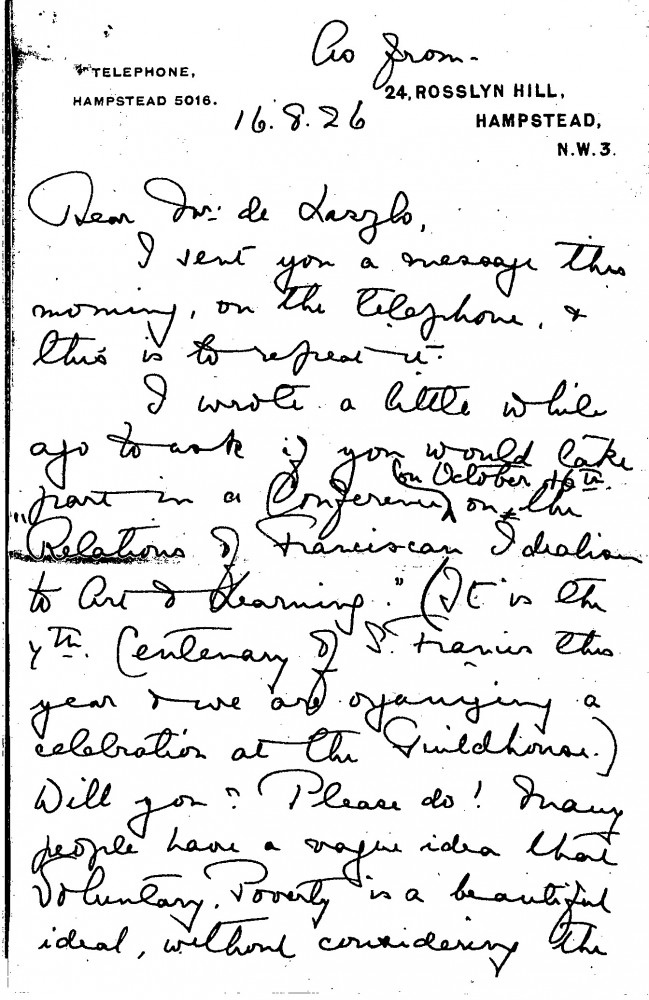 As from -
TELEPHONE,
HAMPSTEAD 5016.
24, ROSSLYN HILL,
HAMPSTEAD,
N.W.3.
16.8.26
Dear Mr. de Laszlo,
I sent you a message this
morning, on the telephone, &
this is to repeat it.
I wrote a little while
ago to ask if you would take
on October
part in a Conference on the
"Relations of Franciscan Idealism
to Art & Learning." (It is the
7th. Centenary of S. Francis this
year & we are organizing a
celebration at the Guildhouse.)
Will you? Please do! Many
people have a vague idea that
Voluntary Poverty is a beautiful
ideal, without considering the